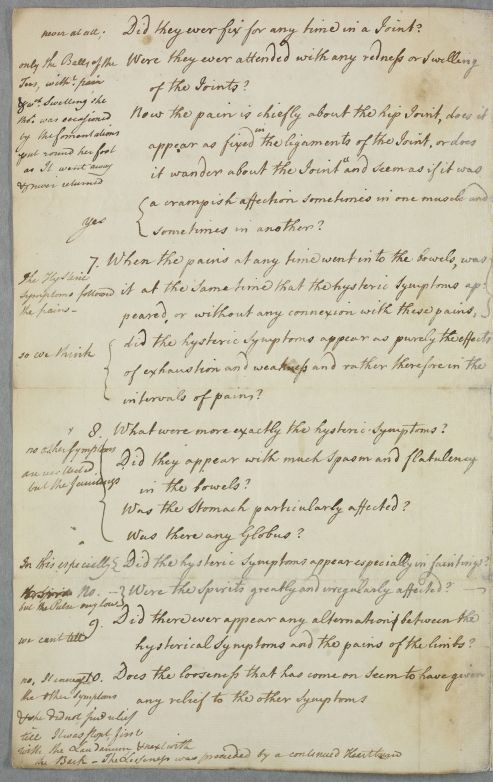 never at all;
Did they ever fix for any time in a Joint?
only the Balls of the
Toes, with pain
& Swelling she
was occasioned
by the fomentations
put round her foot
as It went away
& never returned
Were they ever attended with any redness or Swelling
of the Joints?
Now the pain is chiefly about the hip Joint, does it
appear as fixed in the ligaments of the Joint, or does
it wander about the Joint and seem as if it was
yes
a crampish affection sometimes in one muscle and
sometimes in another?
7. When the pains at any time went into the bowels, was
The Hysteric
Symptoms followed
the pains -
it at the Same time that the hysteric Symptoms ap-
peared, or without any connexion with these pains,
so we think
did the hysteric Symptoms appear as purely the effects
of exhaustion and weakness and rather therefore in the
intervals of pains?
8. What were more exactly the hysteric Symptoms?
no other Symptoms
but the faintings
Did they appear with much Spasm and flatulency
in the bowels?
Was the Stomach particularly affected?
Was there any Globus?
In this especially
Did the hysteric Symptoms appear especially in faintings?
No. -
but the Pulse low
Were the Spirits greatly and irregularly affected?
we cant tell
9. Did there ever appear any alternation between the
hysterical Symptoms and the pains of the limbs?
no, It
the other Symptoms
& she did not find relief
till It was stopt first
with the Laudanum & next with
the Bark - The Looseness was preceeded by a continued Heartburn
10. Does the looseness that has come on Seem to have given
any relief to the other Symptoms